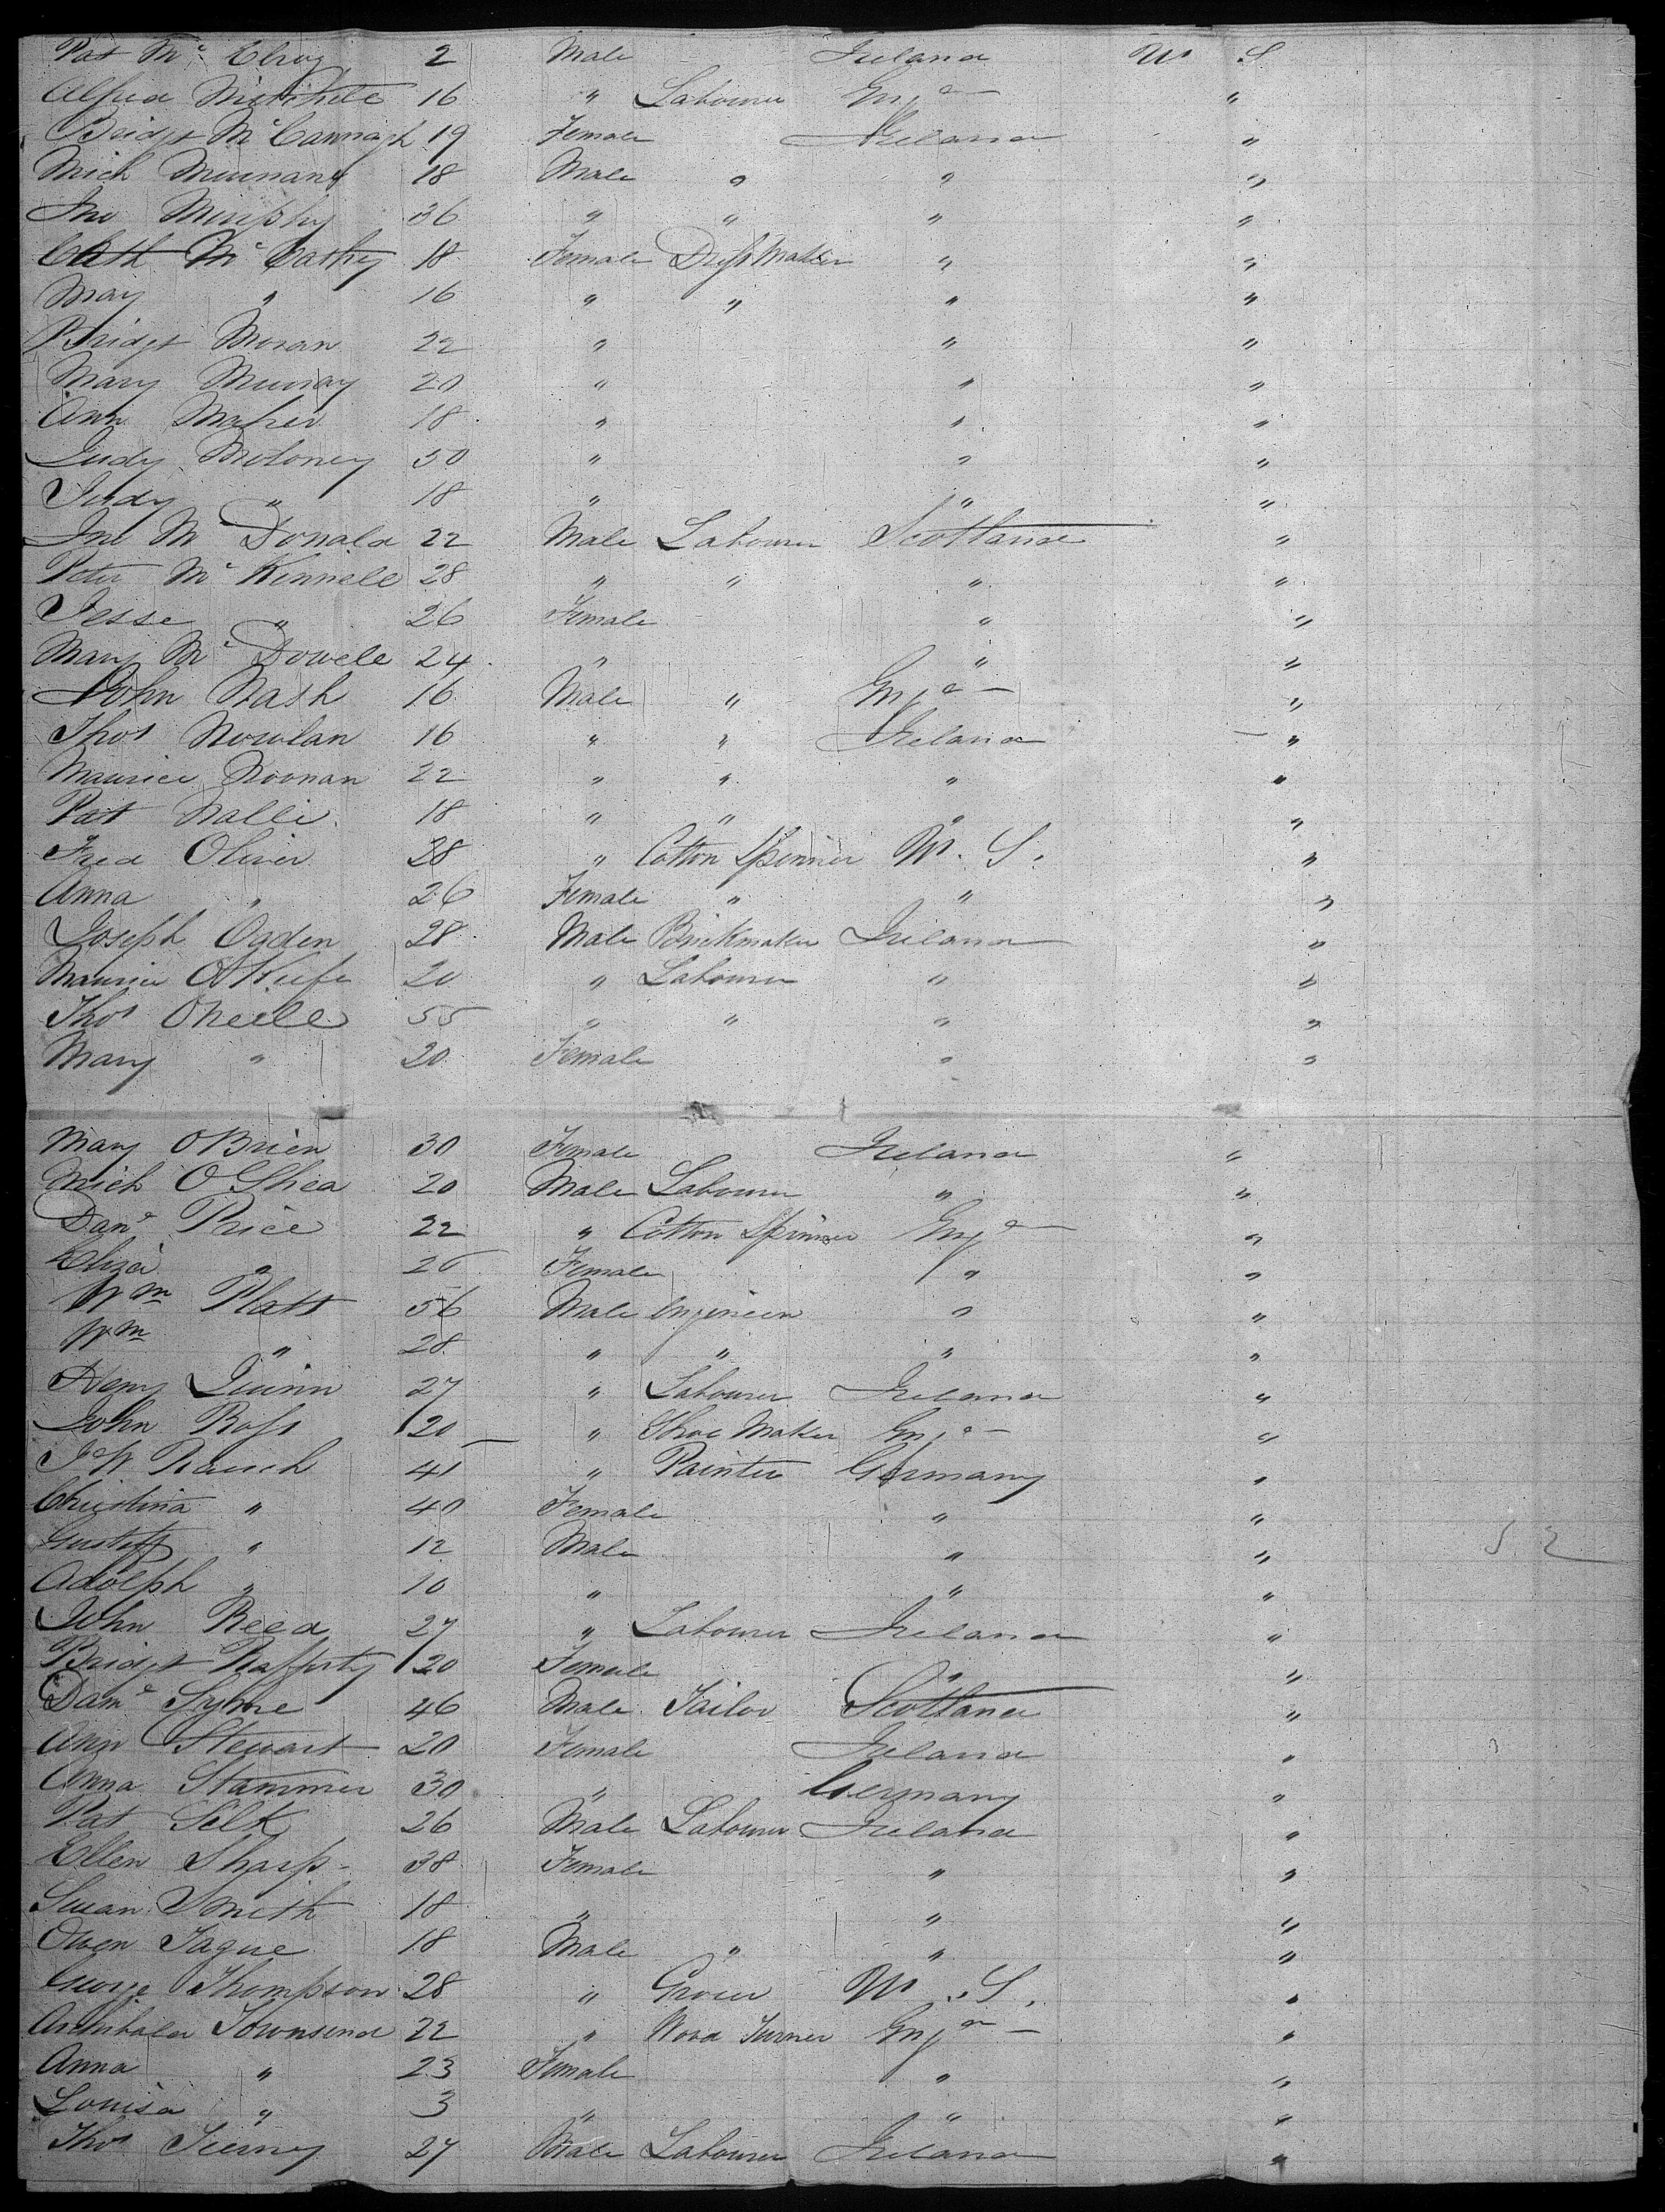 Pat Mc Elroy 2 Male Ireland U S
Alfred Mitchell 16 " Labourer Engd "
Bridgt McCannagh 19 Female Ireland "
Mich Murnane 18 Male " " "
Jno Murphy 36 " " " "
Cath McCathy 18 Female Dress Maker " "
May " 16 " " " "
Bridgt Moran 22 " " "
Mary Murray 20 " " "
Ann Maher 18 " " "
Judy Moloney 50 " " "
Judy " 18 " " "
Jno Mc Donald 22 Male Labourer Scotland "
Peter Mc Kinnell 28 " " " "
Jesse " 26 Female " "
Mary Mc Dowell 24 " " "
John Nash 16 Male " Engd "
Thos Nowlan 16 " " Ireland "
Maurice Noonan 22 " " " "
Pat Nalli 18 " " " "
Fred Oliver 28 " Cotton Spinner U. S. "
Anna " 26 Female " " "
Joseph Ogden 28 Male Brickmaker Ireland "
Maurice O'Keefe 20 " Labourer " "
Thos ONeill 55 " " " "
Mary " 20 Female " "
Mary OBrien 30 Female Ireland "
Mich O Shea 20 Male Labourer " "
Danl Price 22 " Cotton Spinner Engd "
Eliza " 26 Female " "
Wm Platt 56 Male Engineer " "
Wm " 28 " " " "
Henry Quinn 27 " Labourer Ireland "
John Ross 20 " Shoe Maker Engd "
J W Rauch 41 " Painter Germany "
Christina " 40 Female " "
Gustoff " 12 Male " "
Adolph " 10 " " "
John Reed 27 " Labourer Ireland "
Bridgt Rafferty 20 Female " "
Danl Syme 46 Male Tailor Scotland "
Ann Stewart 20 Female Ireland "
Anna Stammer 30 " Germany "
Pat Silk 26 Male Labourer Ireland "
Ellen Sharp 38 Female " "
Susan Smith 18 " " "
Owen Tague 18 Male " " "
George Thompson 28 " Grocer U. S. "
Archibald Townsend 22 " Wood Turner Engd "
Anna " 23 Female " "
Louisa " 3 " " "
Thos Tierney 27 Male Labourer Ireland "